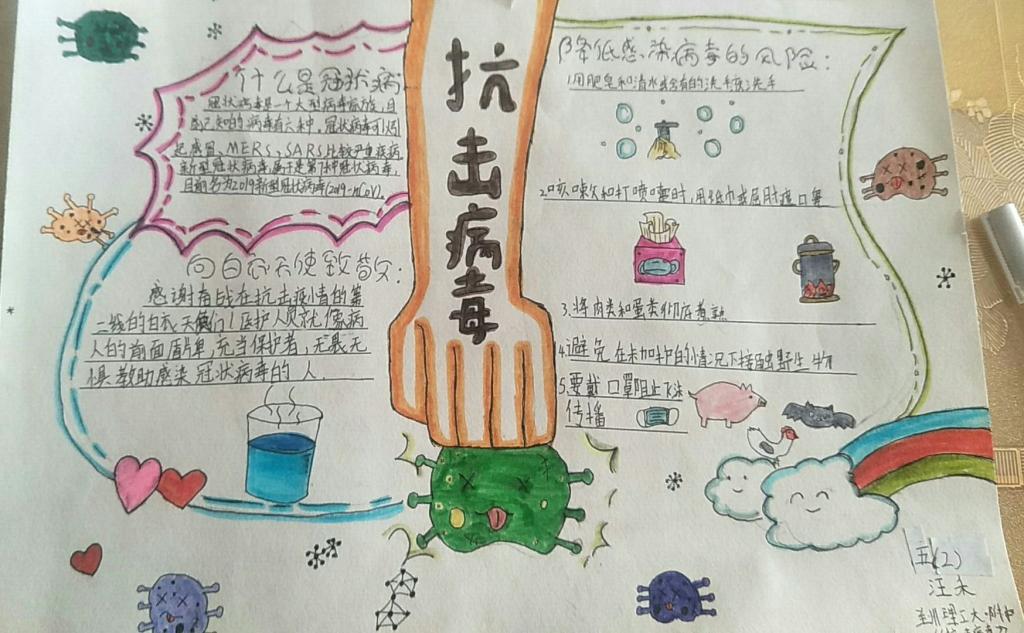 抗击病毒
什么是冠状病
冠状病毒是一个大型病毒家族,目
前已知的病毒有六种,冠状病毒可引
起感冒、MERS、SARS比较严重疾病
新型冠状病毒属于是第7种冠状病毒,
目前名为2019新型冠状病毒(2019-nCoV).
向白衣天使致敬:
感谢奋战在抗击疫情的第
一线的白衣天使们!医护人员就像病
人的前面盾牌,充当保护者,无畏无
惧救助感染冠状病毒的人.
降低感染病毒的风险:
1.用肥皂和清水或含有的洗手液洗手
2.咳嗽和打喷嚏时,用纸巾或屈肘遮口鼻
3.将肉类和蛋类彻底煮熟
4.避免在未加护的情况下接触野生
5.要戴口罩阻止飞沫
传播
五(2)
汪禾
理工大附中